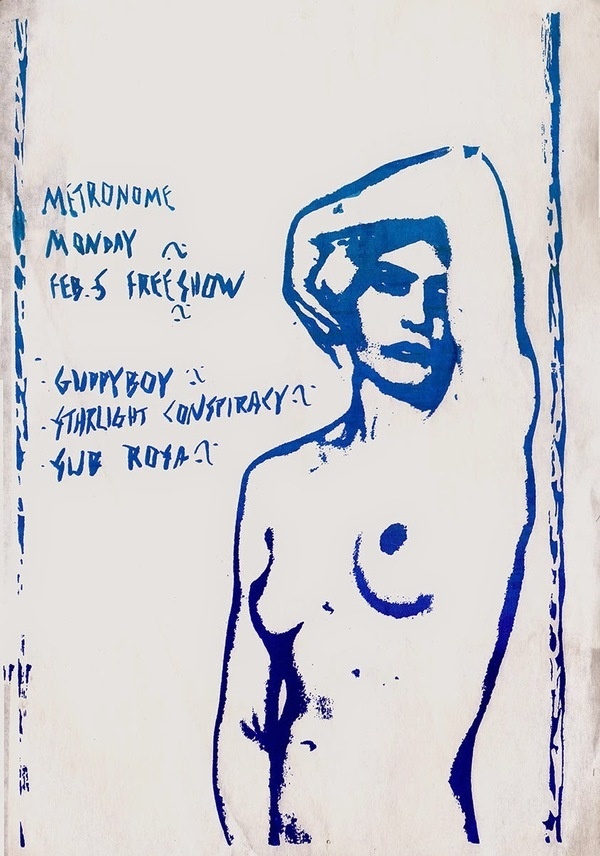 METRONOME
MONDAY
FEB. 5 FREE SHOW
GUPPYBOY
STARLIGHT CONSPIRACY
SUB ROSA